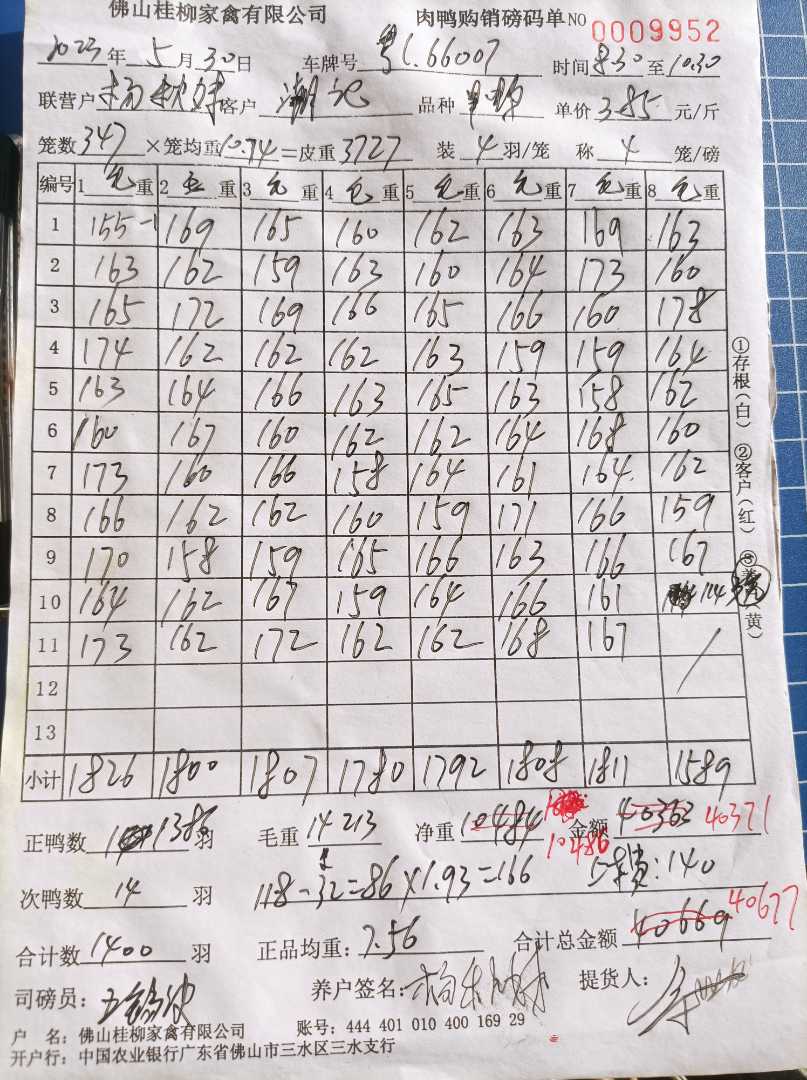 佛山桂柳家禽有限公司 肉鸭购销磅码单 NO 0009952
2023年5月30日 车牌号 粤L.66007 时间 8:30 至 10:30
联营户 客户 潮记 品种 单价 3.85 元/斤
笼数 347 ×笼均重 10.74 =皮重 3727 装 4 羽/笼 称 4 笼/磅
编号 1 毛重 2 毛重 3 毛重 4 毛重 5 毛重 6 毛重 7 毛重 8 毛重
1 155-1 169 165 160 162 163 169 163
2 163 162 159 163 160 164 173 160
3 165 172 169 166 165 166 160 178
4 174 162 162 162 163 159 159 164
5 163 164 166 163 165 163 158 162
6 160 167 160 162 162 164 168 160
7 173 160 166 158 164 161 164 162
8 166 162 162 160 159 171 166 159
9 170 158 159 165 166 163 166 167
10 164 162 167 159 164 166 161 114
11 173 162 172 162 162 168 167 /
12
13
小计 1826 1800 1807 1780 1792 1808 1811 1589
正鸭数 1386 羽 毛重 14213 净重 10484 10486 金额 40363 40371
次鸭数 14 羽 118-32=86×1.93=166 费:140
合计数 1400 羽 正品均重: 7.56 合计总金额 40669 40677
司磅员: 养户签名: 提货人:
户 名: 佛山桂柳家禽有限公司 账号: 444 401 010 400 169 29
开户行: 中国农业银行广东省佛山市三水区三水支行
①存根(白) ②客户(红) ③养 (黄)